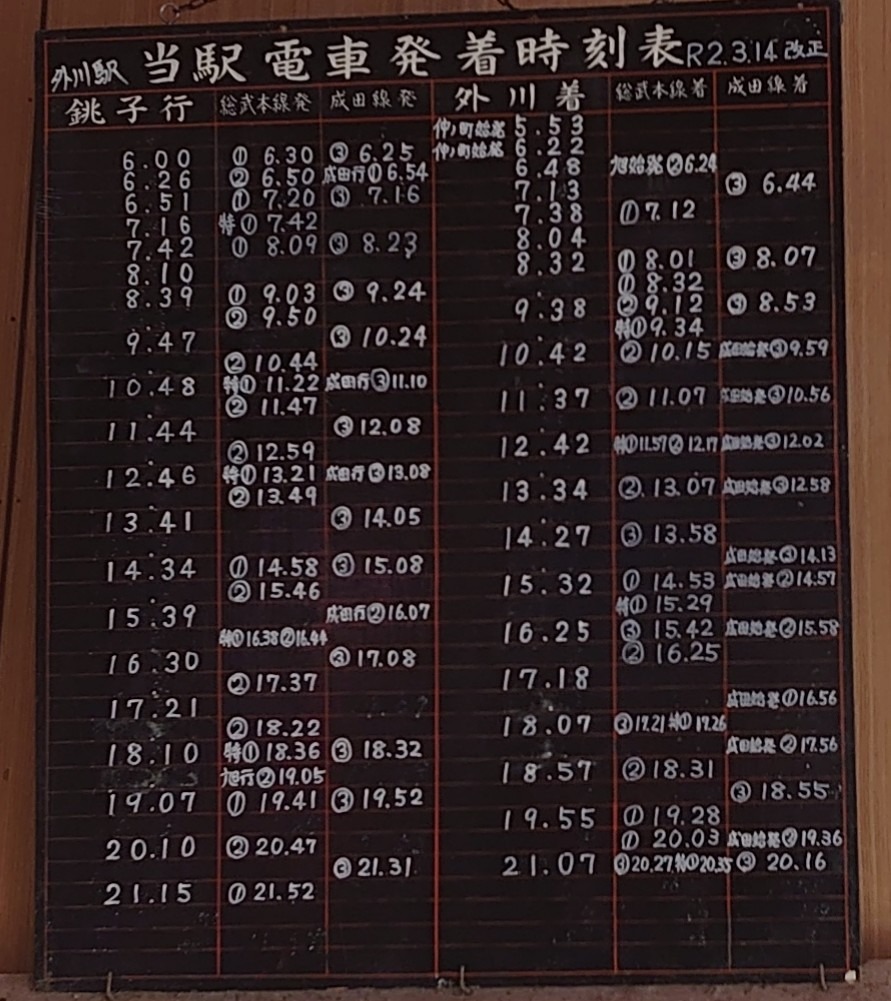 外川駅 当駅電車発着時刻表 R2.3.14 改正
銚子行 総武本線発 成田線発 外川着 総武本線着 成田線着
仲ノ町始発 5.53
6.00 ① 6.30 ③ 6.25 仲ノ町始発 6.22
6.26 ② 6.50 成田行① 6.54 6.48 旭始発②6.24
6.51 ① 7.20 ③ 7.16 7.13 ③ 6.44
7.16 特① 7.42 7.38 ① 7.12
7.42 ① 8.09 ③ 8.23 8.04
8.10 8.32 ① 8.01 ③ 8.07
8.39 ① 9.03 ③ 9.24 ① 8.32
② 9.50 9.38 ② 9.12 ③ 8.53
9.47 ③ 10.24 特① 9.34
② 10.44 10.42 ② 10.15 成田始発③9.59
10.48 特① 11.22 成田行③11.10
② 11.47 11.37 ② 11.07 成田始発③10.56
11.44 ③ 12.08
② 12.59 12.42 特①11.57② 12.17 成田始発③12.02
12.46 特① 13.21 成田行③13.08
② 13.49 13.34 ② 13.07 成田始発③12.58
13.41 ③ 14.05
14.27 ③ 13.58
14.34 ① 14.58 ③ 15.08 成田始発③14.13
② 15.46 15.32 ① 14.53 成田始発②14.57
15.39 成田行②16.07 特① 15.29
特①16.38②16.44 16.25 ③ 15.42 成田始発②15.58
16.30 ③ 17.08 ② 16.25
② 17.37 17.18
17.21 成田始発①16.56
② 18.22 18.07 ③17.21特① 17.26
18.10 特① 18.36 ③ 18.32 成田始発②17.56
旭行② 19.05 18.57 ② 18.31
19.07 ① 19.41 ③ 19.52 ③ 18.55
19.55 ① 19.28
20.10 ② 20.47 ① 20.03 成田始発②19.36
③ 21.31 21.07 ③20.27特①20.35 ③ 20.16
21.15 ① 21.52